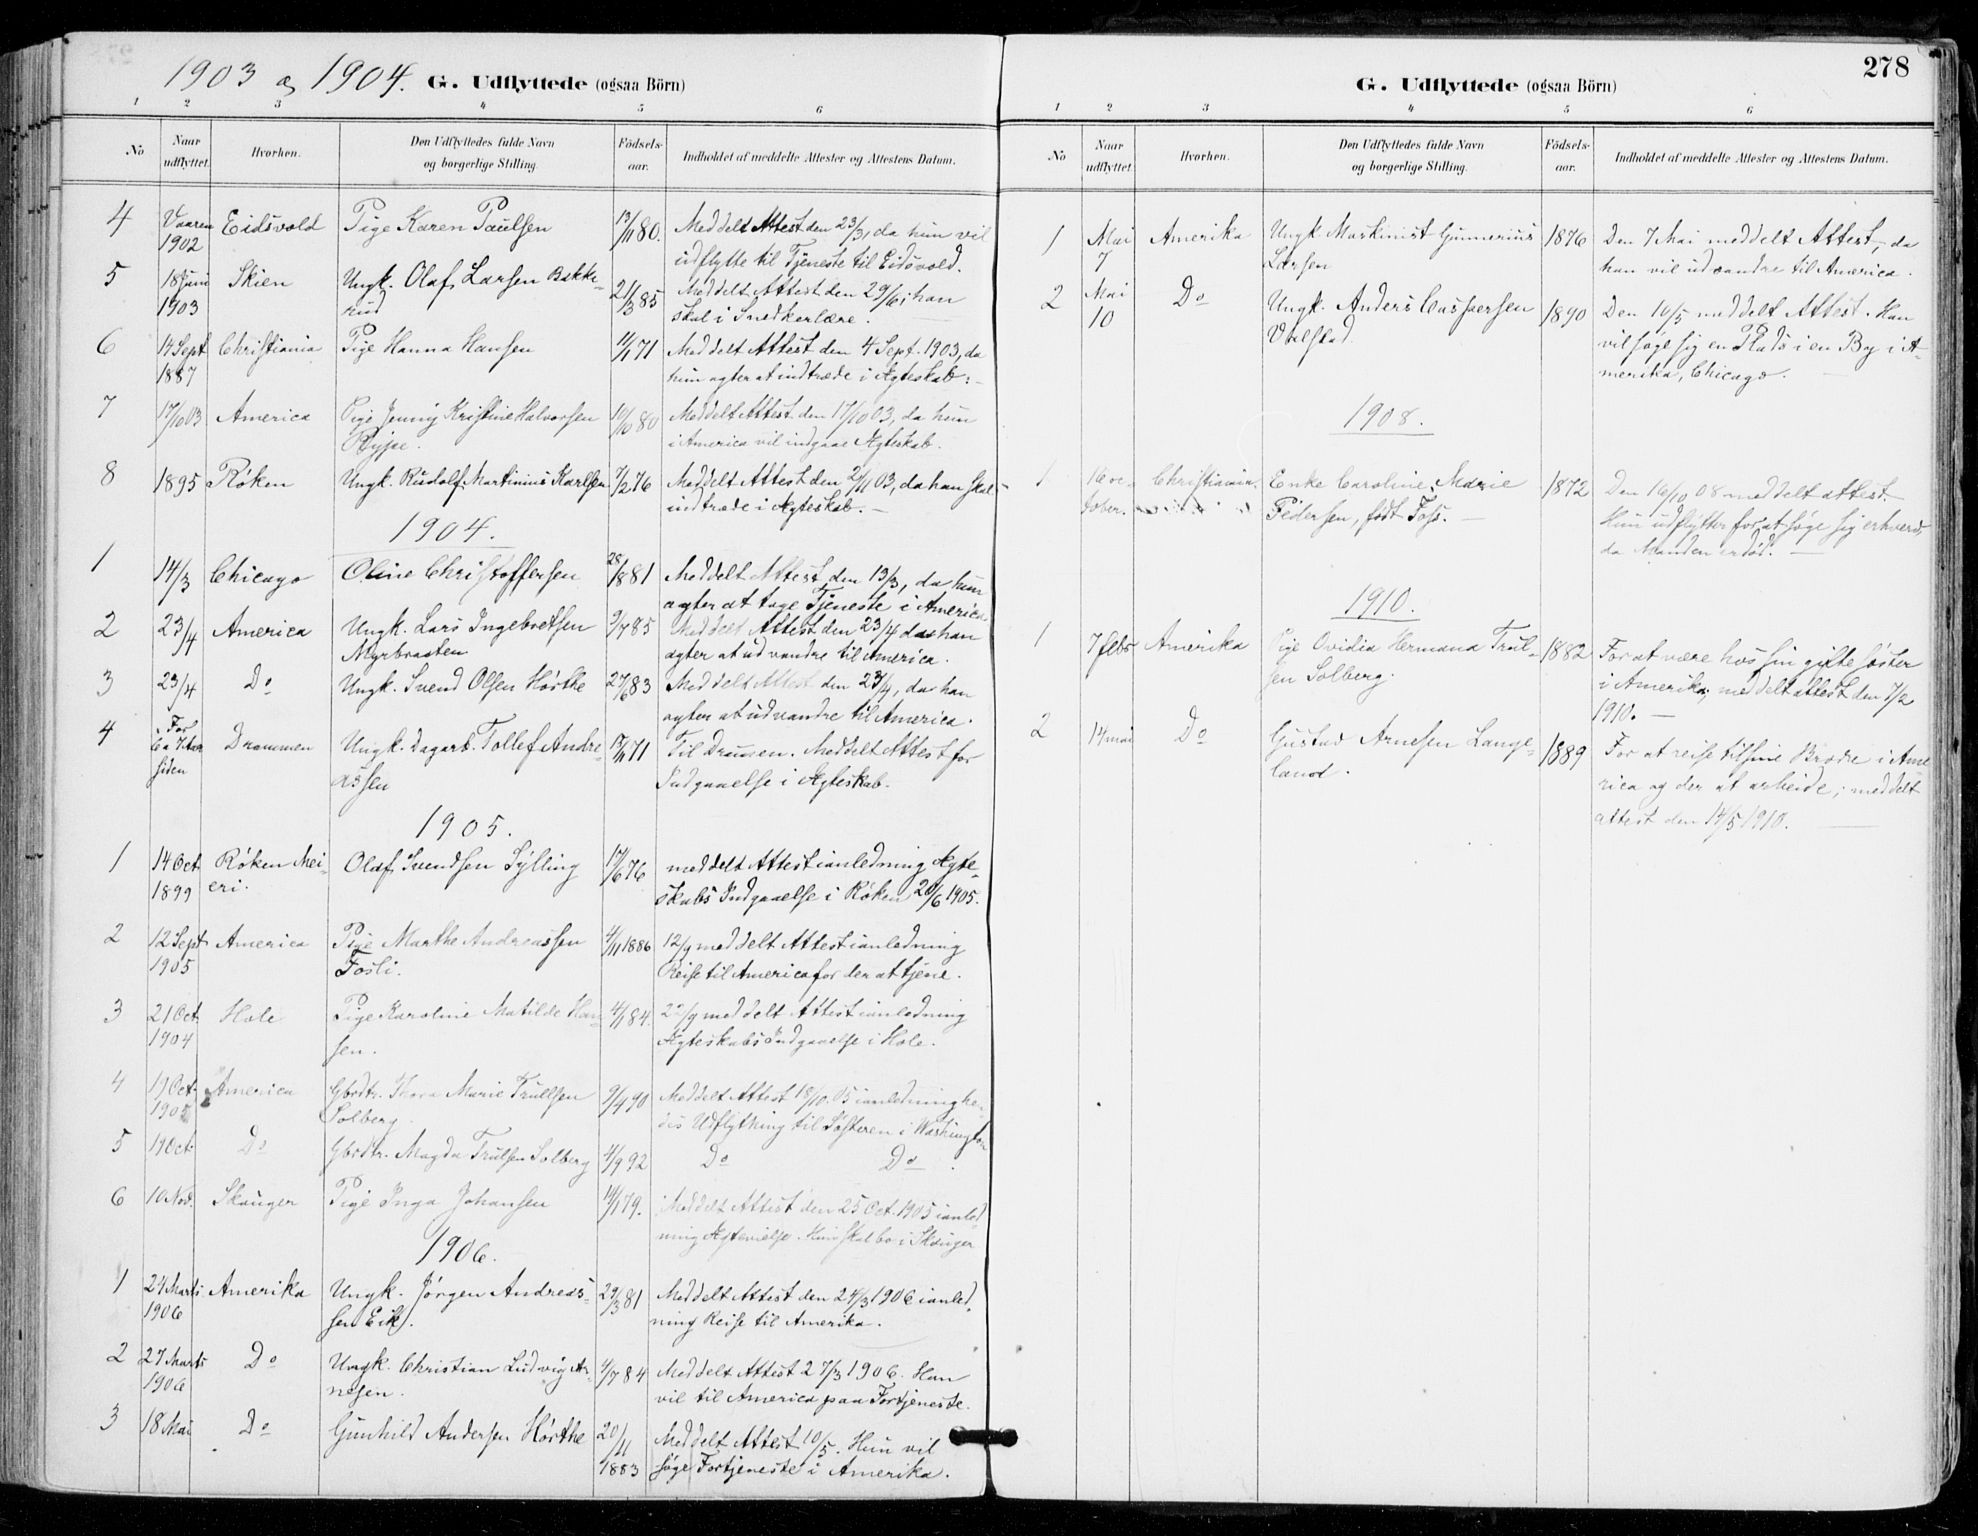 1903 og 1904. G. Udflyttede (ogsaa Börn)
1 2 3 4 5 6
No
Naar udflyttet.
Hvorhen.
Den Udflyttedes fulde Navn og borgerlige Stilling.
Födsels-aar.
Indholdet af meddelte Attester og Attestens Datum.
4 Vaaren 1902 Eidsvold Pige Karen Paulsen 13/11 80. Meddelt Attest den 23/3, da hun vil
udflytte til Tjeneste til Eidsvold.
5 18 Juni 1903 Skien Ungk. Olaf Larsen Bakke-
rud 21/3 85 Meddelt Attest den 29/6; han
skal i Snedkerlære.
6 14 Sept 1887 Christiania Pige Hanna Hansen 11/1 71 Meddelt Attest den 4 Sept. 1903, da
hun agter at indtræde i Ægteskab.
7 17/10 03 America Pige Jenny Kristine Halvorsen
Rypje. 10/10 80 Meddelt Attest den 17/10 03, da hun
i America vil indgaa Ægteskab.
8 1895 Röken Ungk. Rudolf Martinius Karlsen 7/2 76 Meddelt Attest den 2/11 03, da han skal
indtræde i Ægteskab. —
1904.
1 14/3 Chicago Oline Christoffersen 28/1 881 Meddelt Attest den 13/3, da hun
agter at tage Tjeneste i America
2 23/4 America Ungk. Lars Ingebretsen
Myrbraaten 9/7 85 Meddelt Attest den 23/4 da han
agter at udvandre til America.
3 23/4 Do Ungk. Svend Olsen Hörthe 27/6 83 Meddelt Attest den 23/4, da han
agter at udvandre til America.
4 For ca 7 Aar siden Drammen Ungk. Dagarb. Tollef Andre-
assen 13/11 71 Til Dramen. Meddelt Attest for
Indgaaelse i Ægteskab.
1905.
1 14 Oct. 1899 Röken Mei-
eri. Olaf Svendsen Sylling 17/6 76 meddelt Attest i anledning Ægte-
skabs Indgaaelse i Röken 20/6 1905.
2 12 Sept 1905 America Pige Marthe Andreassen
Fosli. 4/11 1886 12/9 meddelt Attest i anledning
Reise til America for der at tjene.
3 21 Oct. 1904 Hole Pige Karoline Matilde Han-
sen. 4/1 84. 22/9 meddelt Attest i anledning
Ægteskabs Indgaaelse i Hole.
4 19 Oct. 1905 America Gbrdtr. Thora Marie Trullsen
Solberg. 9/4 90 Meddelt Attest 18/10. 05 i anledning hen-
des Udflytning til Søsteren i Washington
5 19 Oct. Do Gbrdtr. Magda Trulsen Solberg 4/9 92 Do Do.
6 10 Nov. Skouger Pige Inga Johansen 14/1 79. Meddelt Attest den 25 Oct. 1905 i anled-
ning Ægtevielse. Hun skal bo i Skouger
1906.
1 24 Marts 1906 Amerika Ungk. Jörgen Andreas-
sen Eik. 29/3 81 Meddelt Attest den 24/3 1906 i anled-
ning Reise til Amerika.
2 27 Marts 1906 Do Ungk. Christian Ludvig Ar-
nesen. 4/7 84 Meddelt Attest 27/3 1906. Han
vil til America paa Fortjeneste.
3 18 Mai Do Gunhild Andersen Hörthe 20/11 1883 Meddelt Attest 10/5. Hun vil
söge Fortjeneste i Amerika.
278
G. Udflyttede (ogsaa Börn)
1 2 3 4 5 6
No
Naar udflyttet.
Hvorhen.
Den Udflyttedes fulde Navn og borgerlige Stilling.
Födsels-aar.
Indholdet af meddelte Attester og Attestens Datum.
1 Mai 7 Amerika Ungk. Maskinist Gunnerius
Larsen 1876 Den 7 Mai meddelt Attest, da
han vil udvandre til America.
2 Mai 10 Do Ungk. Anders Caspersen
Valstad. 1890 Den 10/5 meddelt Attest. Han
vil söge sig en Plads i en By i A-
merika, Chicago.
1908.
1 16 oc-
tober. Christiania Enke Caroline Marie
Pedersen, född Foss. 1872 Den 16/10 08 meddelt attest.
Hun udflytter for at söge sig erhverv,
da Manden er död. —
1910.
1 7 febr Amerika Pige Ovidia Hermana Trul-
sen Solberg. 1882 For at være hos sin gifte söster
i Amerika; meddelt attest den 7/2
1910. —
2 14 mai Do Gustav Arnesen Lange-
land. 1889 For at reise til sine Brødre i Ame
rica og der at arbeide; meddelt
attest den 14/5 1910.